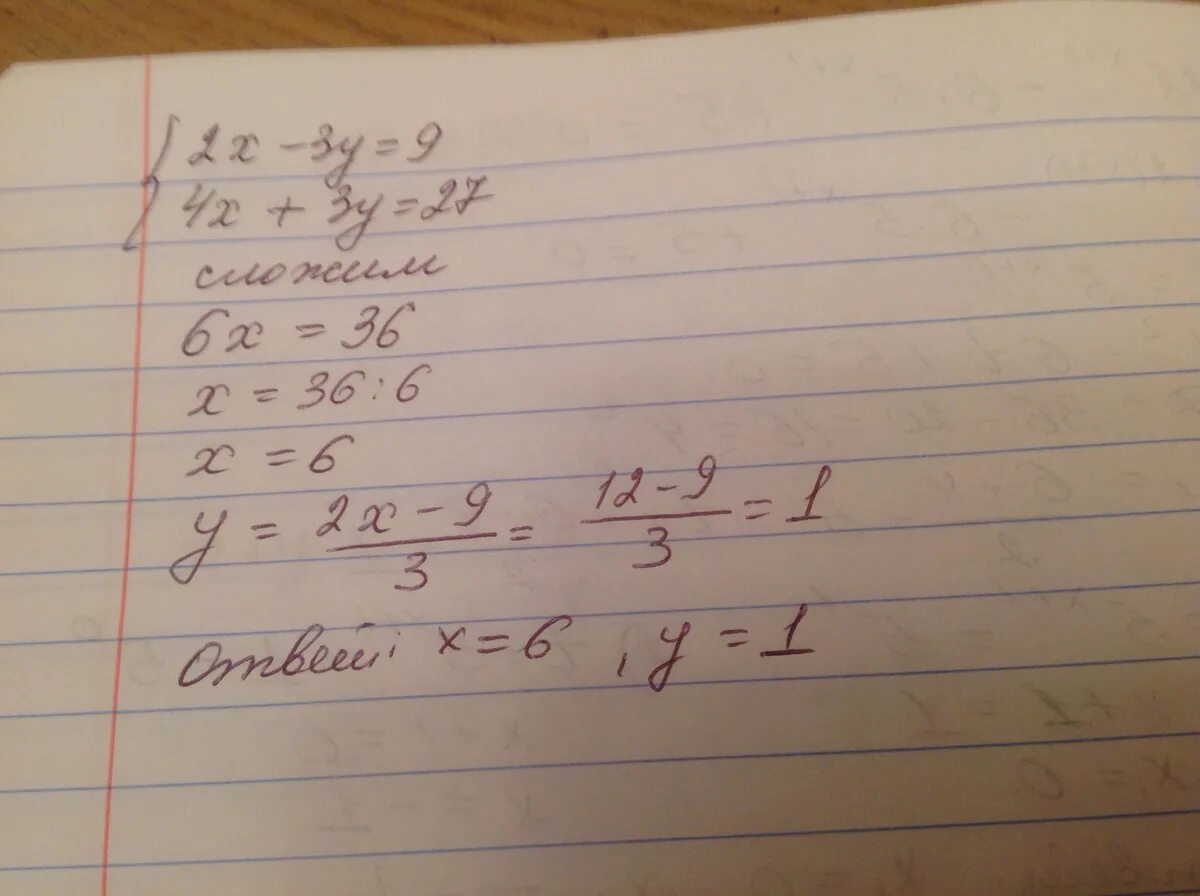 2x - 3y = 9
4x + 3y = 27
сложим
6x = 36
x = 36 : 6
x = 6
y = 2x - 9 / 3 = 12 - 9 / 3 = 1
ответ: x = 6, y = 1